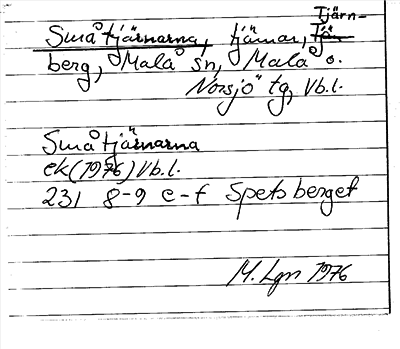 Småtjärnarna, tjärnar, Tjärn-
berg, Malå sn, Malå o.
Norsjö tg, Vb.l.
Småtjärnarna
ek (1976) Vb.l.
231 8-9 e-f Spetsberget
M. Lgn 1976